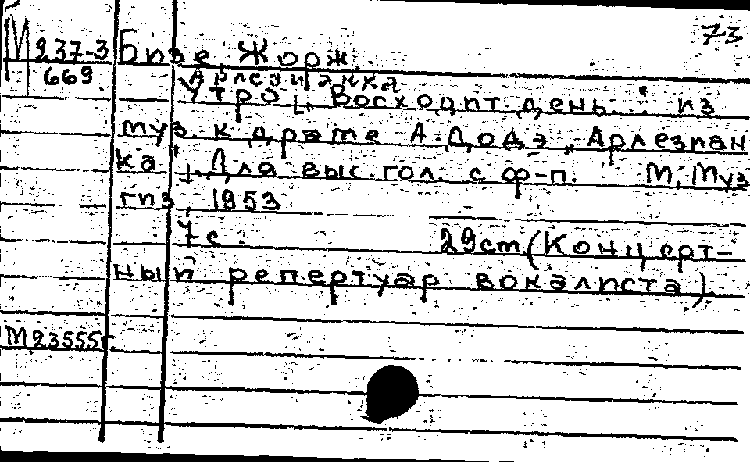 73
М 237-3 Бизе, Жорж.
669. Арлезианка
Утро [: "Восходит день..." из
муз. к драме А. Додэ "Арлезиан
ка"]. Для выс. гол. с ф-п. М., Муз
гиз, 1953
7 с. 29 cm (Концерт-
ный репертуар вокалиста).
М 23555г.